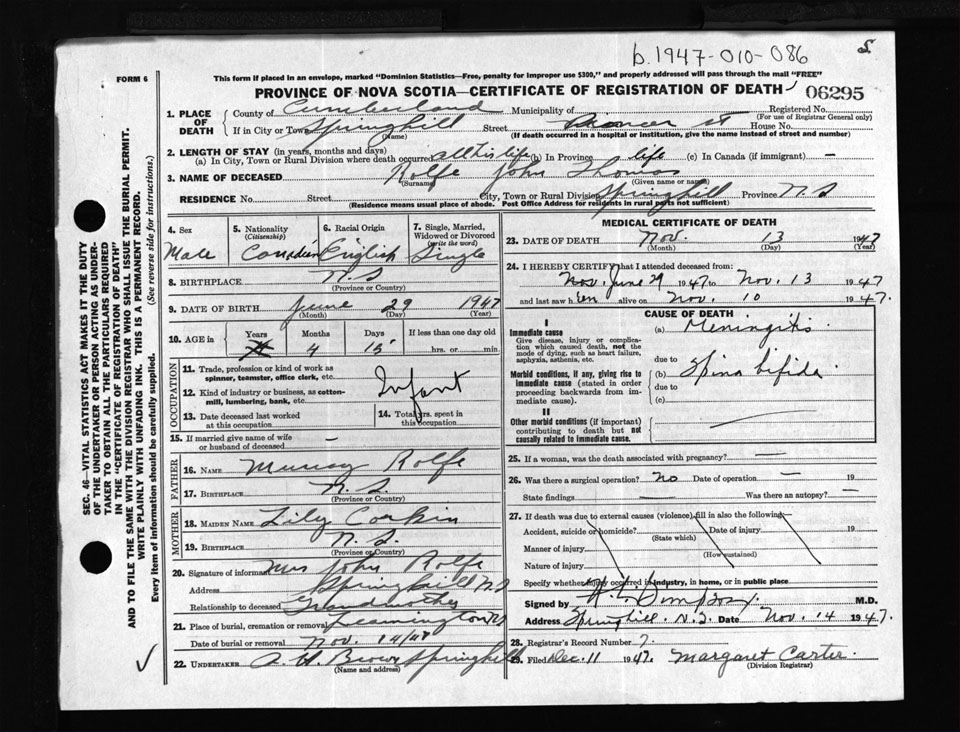 b.1947-010-086
S.
FORM 6
This form if placed in an envelope, marked "Dominion Statistics—Free, penalty for improper use $300," and properly addressed will pass through the mail "FREE"
PROVINCE OF NOVA SCOTIA—CERTIFICATE OF REGISTRATION OF DEATH
06295
SEC. 46—VITAL STATISTICS ACT MAKES IT THE DUTY
OF THE UNDERTAKER OR PERSON ACTING AS UNDER-
TAKER TO OBTAIN ALL THE PARTICULARS REQUIRED
IN THE "CERTIFICATE OF REGISTRATION OF DEATH"
AND TO FILE THE SAME WITH THE DIVISION REGISTRAR WHO SHALL ISSUE THE BURIAL PERMIT.
WRITE PLAINLY WITH UNFADING INK. THIS IS A PERMANENT RECORD.
Every item of information should be carefully supplied. (See reverse side for instructions.)
1. PLACE OF DEATH
County of Cumberland Municipality of Registered No.
(For use of Registrar General only)
If in City or Town Springhill Street Pioneer St House No.
(Name) (If death occurred in a hospital or institution, give the name instead of street and number)
2. LENGTH OF STAY (in years, months and days)
(a) In City, Town or Rural Division where death occurred all his life (b) In Province life (c) In Canada (if immigrant) —
3. NAME OF DECEASED Rolfe John Thomas
(Surname) (Given name or names)
RESIDENCE No. Street City, Town or Rural Division Springhill Province N.S
(Residence means usual place of abode. Post Office Address for residents in rural parts not sufficient)
4. Sex
Male
5. Nationality
(Citizenship)
Canadien
6. Racial Origin
English
7. Single, Married,
Widowed or Divorced
(write the word)
Single
8. BIRTHPLACE N.S
(Province or Country)
9. DATE OF BIRTH June 29 1947
(Month) (Day) (Year)
10. AGE in Years Months Days If less than one day old
4 15 hrs. or min.
OCCUPATION
11. Trade, profession or kind of work as
spinner, teamster, office clerk, etc.
12. Kind of industry or business, as cotton-
mill, lumbering, bank, etc.
Infant
13. Date deceased last worked
at this occupation
14. Total yrs. spent in
this occupation
15. If married give name of wife
or husband of deceased —
FATHER
16. NAME Murray Rolfe
17. BIRTHPLACE N.S.
(Province or Country)
MOTHER
18. MAIDEN NAME Lily Corkin
19. BIRTHPLACE N.S.
(Province or Country)
20. Signature of informant Mrs John Rolfe
Address Springhill N.S
Relationship to deceased Grandmother
21. Place of burial, cremation or removal Leamington NS
Date of burial or removal Nov. 14/47
22. UNDERTAKER A. H. Brown Springhill
(Name and address)
MEDICAL CERTIFICATE OF DEATH
23. DATE OF DEATH Nov. 13 1947
(Month) (Day) (Year)
24. I HEREBY CERTIFY that I attended deceased from:
Nov. June 29 1947 to Nov. 13 1947
and last saw h im alive on Nov. 10 1947.
CAUSE OF DEATH
I
Immediate cause
Give disease, injury or complica-
tion which caused death, not the
mode of dying, such as heart failure,
asphyxia, asthenia, etc.
(a) Meningitis
due to
Morbid conditions, if any, giving rise to
immediate cause (stated in order
proceeding backwards from im-
mediate cause).
(b) Spina bifida
due to
(c)
II
Other morbid conditions (if important)
contributing to death but not
causally related to immediate cause.
25. If a woman, was the death associated with pregnancy? —
26. Was there a surgical operation? no Date of operation — 19
State findings — Was there an autopsy? —
27. If death was due to external causes (violence) fill in also the following—
Accident, suicide or homicide? Date of injury 19
(State which)
Manner of injury
(How sustained)
Nature of injury
Specify whether injury occurred in industry, in home, or in public place
Signed by H. L. Simpson. M.D.
Address Springhill. N.S. Date Nov. 14 1947.
28. Registrar's Record Number 7.
29. Filed Dec. 11 1947. Margaret Carter.
(Division Registrar)